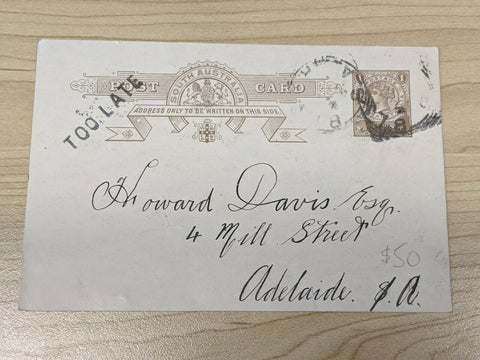 POST CARD
SOUTH AUSTRALIA
ADDRESS ONLY TO BE WRITTEN ON THIS SIDE.
TOO LATE
Howard Davis Esq.
4 Mill Street
$50
Adelaide. S.A.